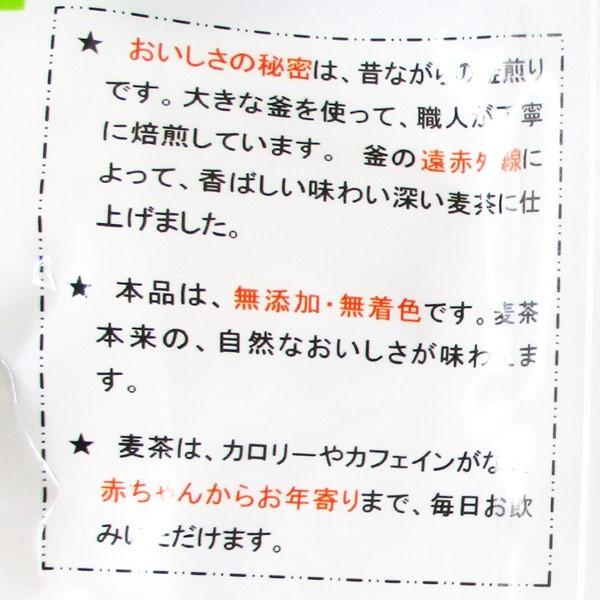 ★ おいしさの秘密は、昔ながらの釜煎り
です。大きな釜を使って、職人が丁寧
に焙煎しています。 釜の遠赤外線に
よって、香ばしい味わい深い麦茶に仕
上げました。
★ 本品は、無添加・無着色です。麦茶
本来の、自然なおいしさが味わえま
す。
★ 麦茶は、カロリーやカフェインがな
赤ちゃんからお年寄りまで、毎日お飲
みいただけます。